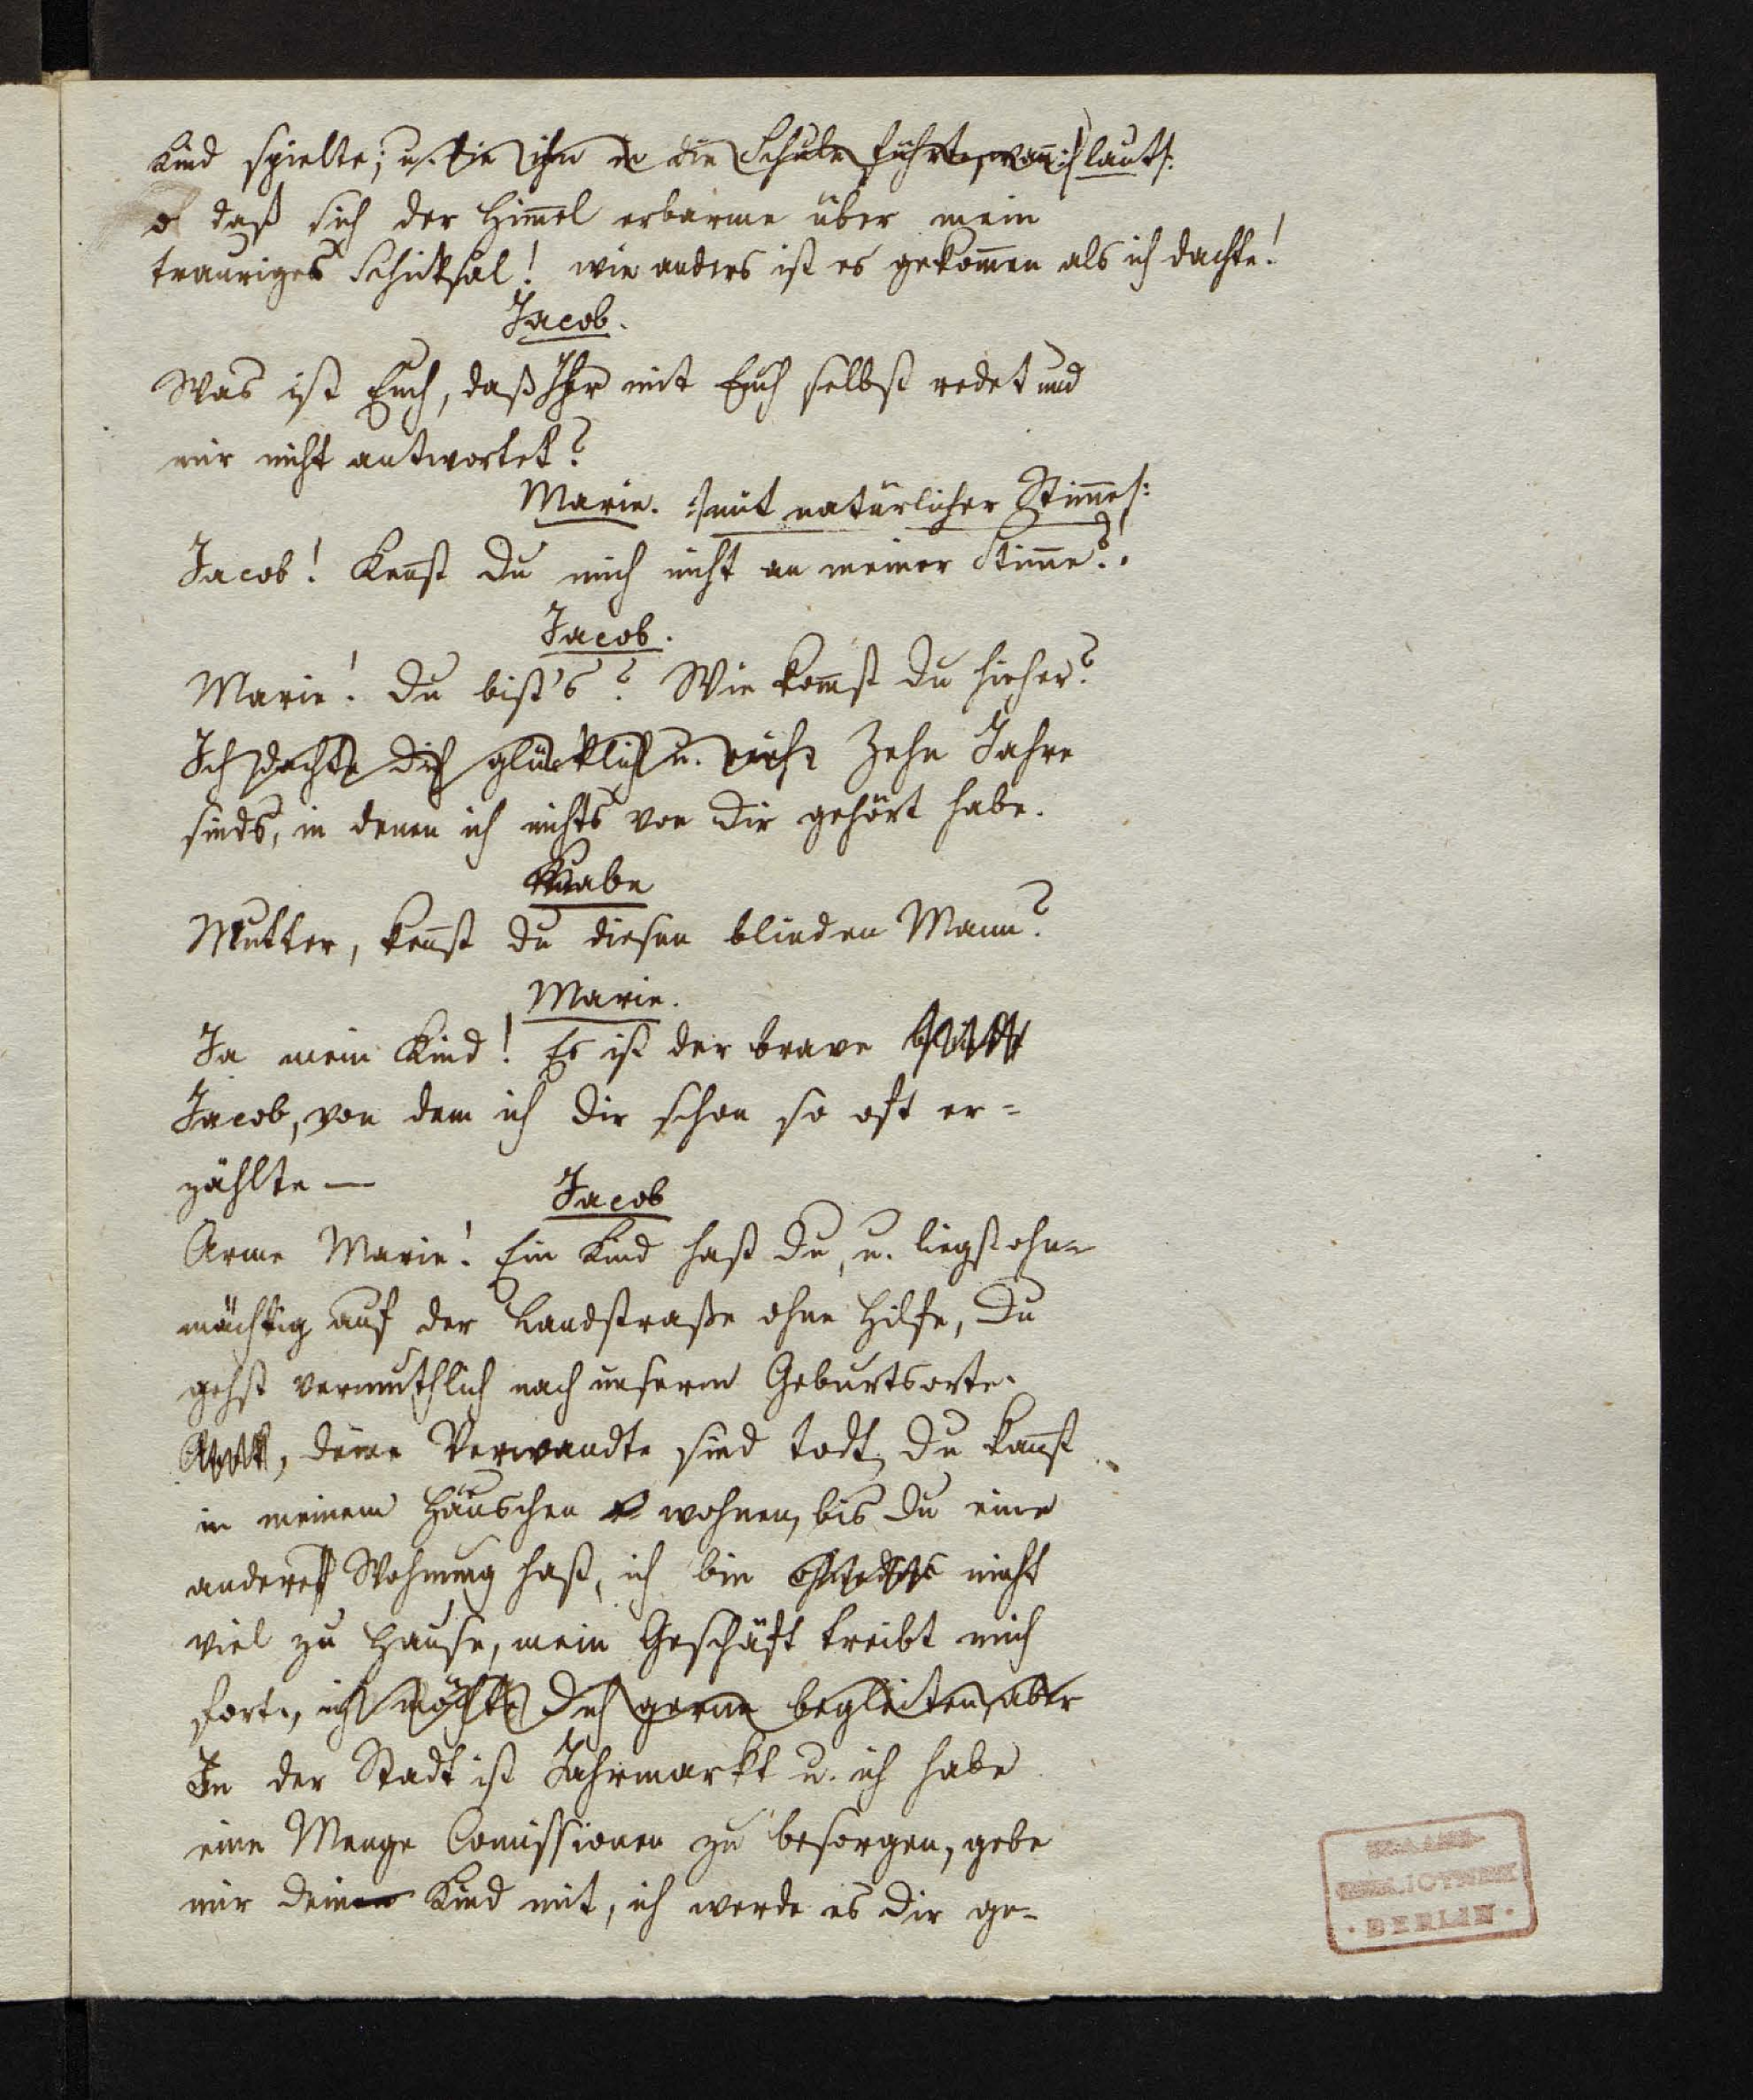 Kind spielte; u. die ihn in die Schule führte, wann ich laut:/
o daß sich der Him̄el erbarme über mein
trauriges Schicksal! wie anders ist es gekom̄en als ich dachte!
Jacob.
Was ist Euch, daß Ihr mit Euch selbst redet und
mir nicht antwortet?
Marie. :/mit natürlicher Stim̄e/:
Jacob! Ken̄st du mich nicht an meiner Stim̄e?!
Jacob.
Marie! du bist's? Wie kom̄st du hieher?
Ich dachte dich glücklich u. reich? Zehn Jahre
sinds, in denen ich nichts von dir gehört habe.
Knabe
Mutter, ken̄st du diesen blinden Mann?
Marie.
Ja mein Kind! Es ist der brave
Jacob, von dem ich dir schon so oft er=
zählte —
Jacob
Arme Marie! Ein Kind hast du, u. liegst ohn=
mächtig auf der Landstraße ohne Hilfe, du
gehst vermuthlich nach unserm Geburtsorte.
deine Verwandte sind todt, du kan̄st
in meinem Häuschen wohnen, bis du eine
andere Wohnung hast, ich bin nicht
viel zu Hause, mein Geschäft treibt mich
fort., ich möchte dich gerne begleiten, aber
In der Stadt ist Jahrmarkt u. ich habe
eine Menge Com̄issionen zu besorgen, gebe
mir dein Kind mit, ich werde es dir ge-
BIBLIOTHEK
· BERLIN ·